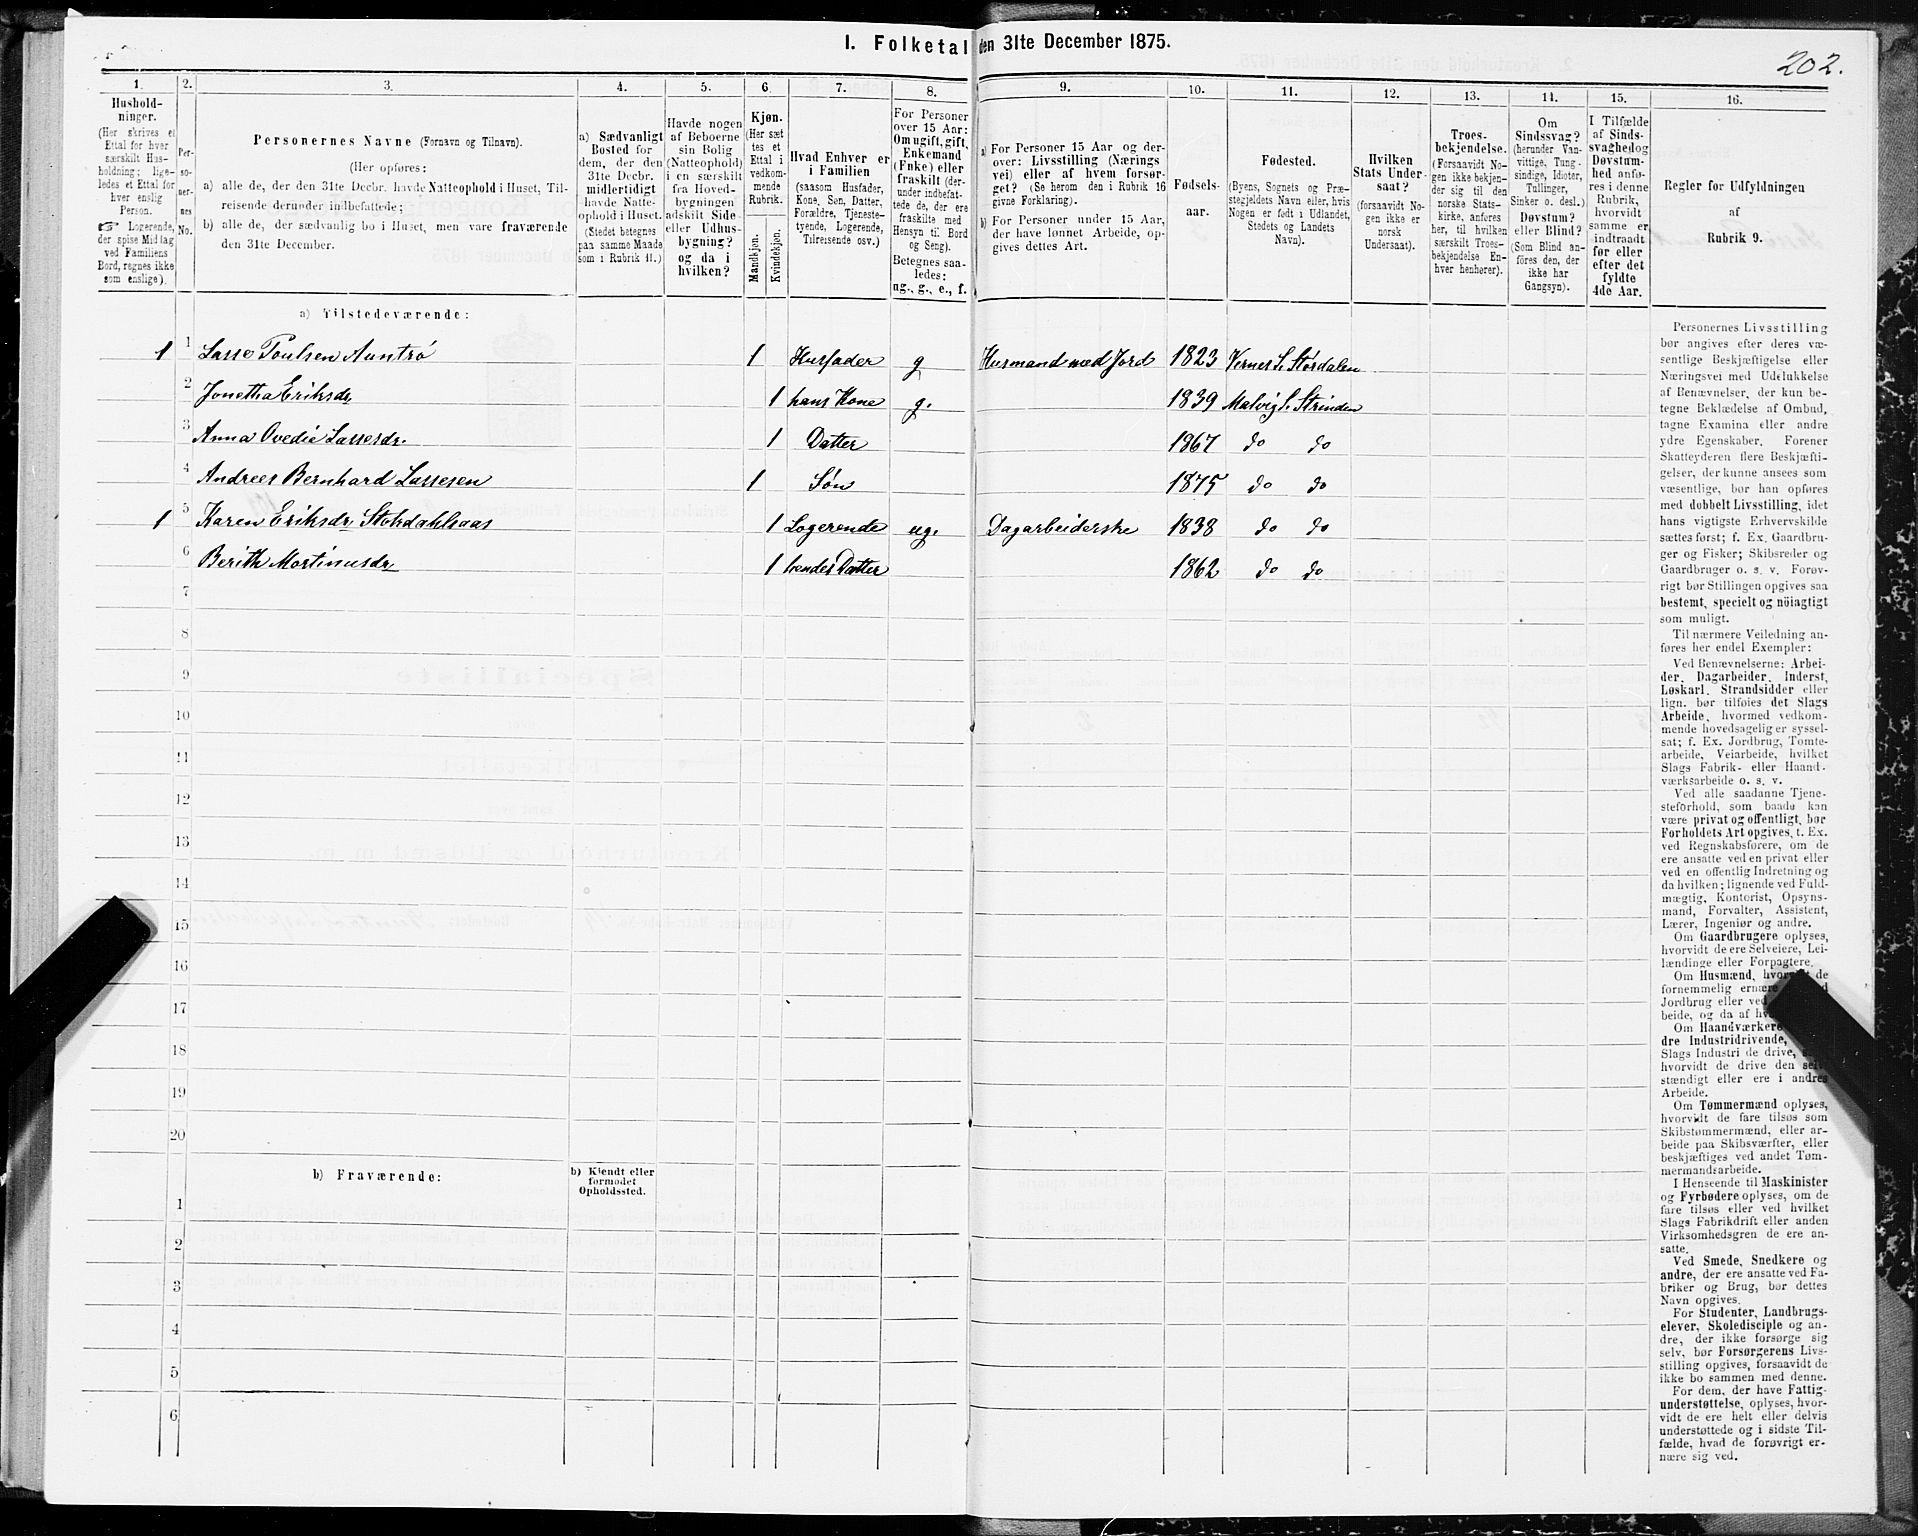 I. Folketal den 31te December 1875.
202.
1.
Hushold-
ninger.
(Her skrives et
Ettal for hver
særskilt Hus-
holdning; lige-
ledes et Ettal for
hver enslig
Person.
☞ Logerende,
der spise Middag
ved Familiens
Bord, regnes ikke
som enslige).
2.
Per-
soner-
nes
No.
3.
Personernes Navne (Fornavn og Tilnavn).
(Her opføres:
a) alle de, der den 31te Decbr. havde Natteophold i Huset, Til-
reisende derunder indbefattede;
b) alle de, der sædvanlig bo i Huset, men vare fraværende
den 31te December.
4.
a) Sædvanligt
Bosted for
dem, der den
31te Decbr.
midlertidigt
havde Natte-
ophold i Huset.
(Stedet betegnes
paa samme Maade
som i Rubrik 11.)
5.
Havde nogen
af Beboerne
sin Bolig
(Natteophold)
i en særskilt
fra Hoved-
bygningen
adskilt Side-
eller Udhus-
bygning?
og da i
hvilken?
6.
Kjøn.
(Her sæt
tes et
Ettal i
vedkom-
mende
Rubrik.
Mandkjøn.
Kvindekjøn.
7.
Hvad Enhver er
i Familien
(saasom Husfader,
Kone, Søn, Datter,
Forældre, Tjeneste-
tyende, Logerende,
Tilreisende osv.)
8.
For Personer
over 15 Aar:
Om ugift, gift,
Enkemand
(Enke) eller
fraskilt (der-
under indbefat-
tede de, der ere
fraskilte med
Hensyn til Bord
og Seng).
Betegnes saa-
ledes:
ug., g., e., f.
9.
a) For Personer 15 Aar og der-
over: Livsstilling (Nærings
vei) eller af hvem forsør-
get? (Se herom den i Rubrik 16
givne Forklaring).
b) For Personer under 15 Aar,
der have lønnet Arbeide, op-
gives dettes Art.
10.
Fødsels-
aar.
11.
Fødested.
(Byens, Sognets og Præ-
stegjeldets Navn eller, hvis
Nogen er født i Udlandet,
Stedets og Landets
Navn).
12.
Hvilken
Stats Under-
saat?
(forsaavidt No-
gen ikke er
norsk
Undersaat).
13.
Troes-
bekjendelse.
(Forsaavidt No-
gen ikke bekjen-
der sig til den
norske Stats-
kirke, anføres
her, til hvilken
særskilt Troes-
bekjendelse En-
hver henhører).
14.
Om
Sindssvag?
(herunder Van-
vittige, Tung-
sindige, Idioter,
Tullinger,
Sinker o. desl.)
Døvstum?
eller Blind?
(Som Blind an-
føres den, der
ikke har
Gangsyn).
15.
I Tilfælde
af Sinds-
svaghed og
Døvstum-
hed anfø-
res i denne
Rubrik,
hvorvidt
samme er
indtraadt
før eller
efter det
fyldte
4de Aar.
16.
Regler for Udfyldningen
af
Rubrik 9.
a) Tilstedeværende:
1 1 Lasse Poulsen Auntrø 1 Husfader g Husmand med Jord 1823 Vernes S. Størdalen
2 Jonetha Eriksdr 1 hans Kone g. 1839 Malvig S. Strinden
3 Anna Ovedie Lassesdr. 1 Datter 1867 do do
4 Andreas Bernhard Lassesen 1 Søn 1875 do do
1 5 Karen Eriksdr Stohrdahlsaas 1 Logerende ug. Dagarbeiderske 1838 do do
6 Berith Mortinusdr 1 hendes Datter 1862 do do
7
8
9
10
11
12
13
14
15
16
17
18
19
20
b) Fraværende:
b) Kjendt eller
formodet
Opholdssted.
1
2
3
4
5
6
Personernes Livsstilling
bør angives efter deres væ-
sentlige Beskjæftigelse eller
Næringsvei med Udelukkelse
af Benævnelser, der kun be-
tegne Beklædelse af Ombud,
tagne Examina eller andre
ydre Egenskaber. Forener
Skatteyderen flere Beskjæfti-
gelser, der kunne ansees som
væsentlige, bør han opføres
med dobbelt Livsstilling, idet
hans vigtigste Erhvervskilde
sættes først; f. Ex. Gaardbru-
ger og Fisker; Skibsreder og
Gaardbruger o. s. v. Forøv-
rigt bør Stillingen opgives saa
bestemt, specielt og nöiagtigt
som muligt.
Til nærmere Veiledning an-
føres her endel Exempler:
Ved Benævnelserne: Arbei-
der, Dagarbeider, Inderst,
Løskarl, Strandsidder eller
lign. bør tilføies det Slags
Arbeide, hvormed vedkom-
mende hovedsagelig er syssel-
sat; f. Ex. Jordbrug, Tomte-
arbeide, Veiarbeide, hvilket
Slags Fabrik- eller Haand-
værksarbeide o. s. v.
Ved alle saadanne Tjene-
steforhold, som baade kan
være privat og offentligt, bør
Forholdets Art opgives, t. Ex.
ved Regnskabsførere, om de
ere ansatte ved en privat eller
ved en offentlig Indretning og
da hvilken; lignende ved Fuld-
mægtig, Kontorist, Opsyns-
mand, Forvalter, Assistent,
Lærer, Ingeniør og andre.
Om Gaardbrugere oplyses,
hvorvidt de ere Selveiere, Lei-
lændinge eller Forpagtere.
Om Husmænd, de
fornemmelig
Jordbrug eller ved
beide, og da af
Om Haandværkere
dre Industridrivende,
Slags Industri de drive,
hvorvidt de drive den selv-
stændigt eller ere i andres
Arbeide.
Om Tømmermænd oplyses,
hvorvidt de fare tilsøs som
Skibstømmermænd, eller ar-
beide paa Skibsværfter, eller
beskjæftiges ved andet Tøm-
mermandsarbeide.
I Henseende til Maskinister
og Fyrbødere oplyses, om de
fare tilsøs eller ved hvilket
Slags Fabrikdrift eller anden
Virksomhedsgren de ere an-
satte.
Ved Smede, Snedkere og
andre, der ere ansatte ved Fa-
briker og Brug, bør dettes
Navn opgives.
For Studenter, Landbrugs-
elever, Skoledisciple og an-
dre, der ikke forsørge sig
selv, bør Forsørgerens Livs-
stilling opgives, forsaavidt de
ikke bo sammen med denne.
For dem, der have Fattig-
understøttelse, oplyses, hvor-
vidt de ere helt eller delvis
understøttede og i sidste Til-
fælde, hvad de forøvrigt er-
nære sig ved.